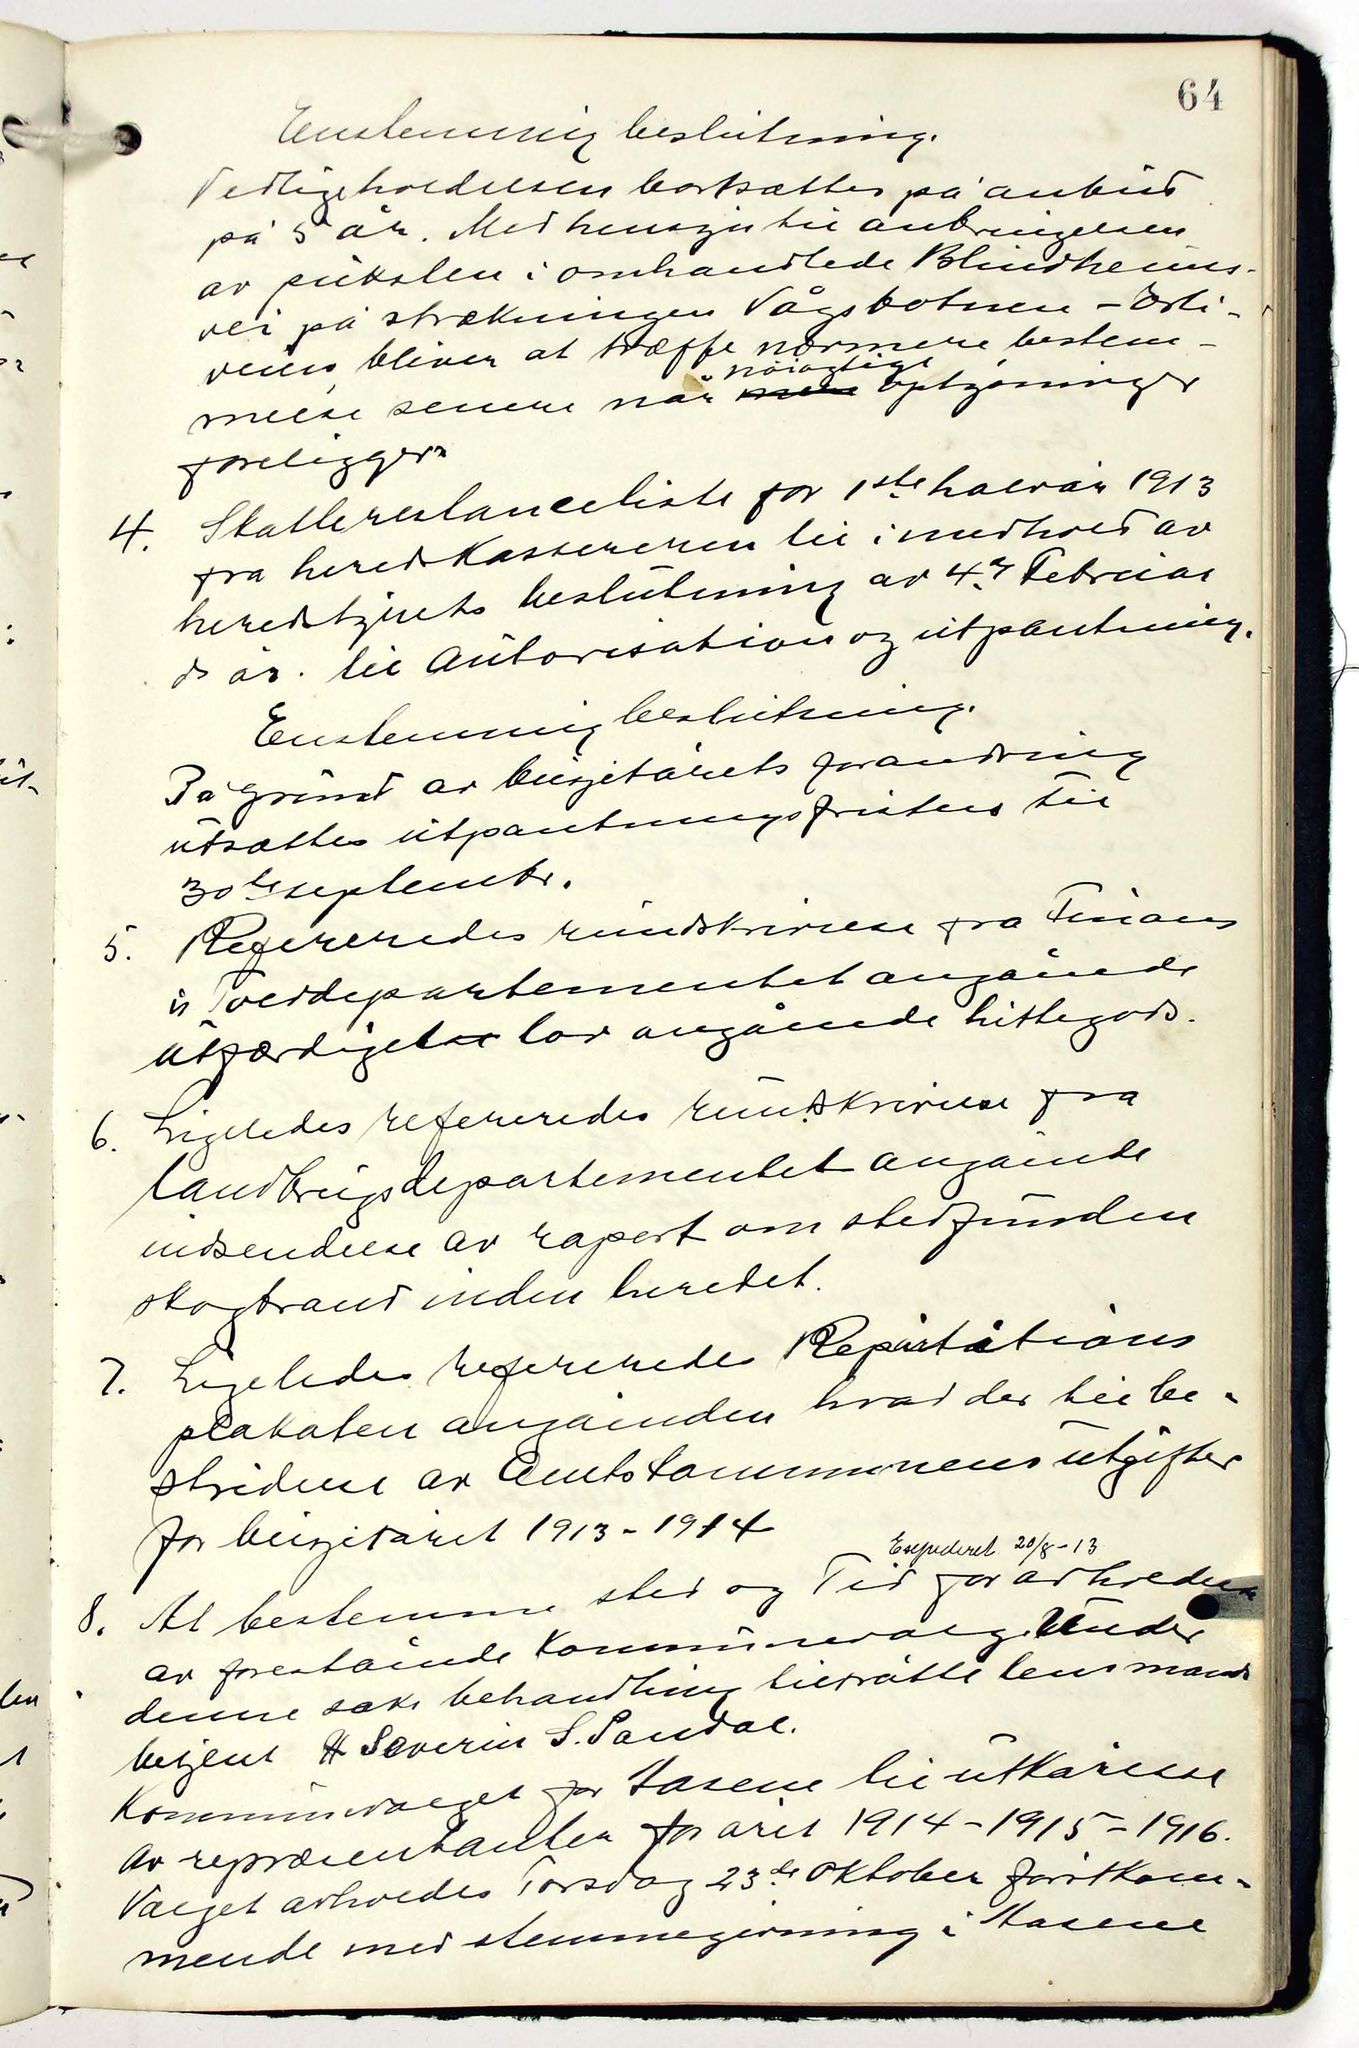 64
Enstemmig beslutning.
Vedligeholdelsen bortsættes på anbud
på 5 år. Med hensyn til anbringelsen
av pukslen i omhandlede Blindheims-
vei på strækningen Vågsbotnen - Ørli-
veien bliver at træffe nærmere bestem-
melse senere når nöiagtige optgjøninger
foreligger.
4. Skatterestanceliste for 1ste halvår 1913
fra heredskassereren til i medhold av
heredstyrets beslutning av 4de Februar
ds år. til Autorisation og utpantning.
Enstemmig beslutning.
På grund av budjetårets forandring
utsættes utpantningsfristens til
30te septembr.
5. Refereredes rundskrivelse fra Finans
& Tolddepartementet angående
utfærdiget lov angående hittegods.
6. Ligeledes refereredes rundskrivelse fra
landbrugsdepartementet angående
indsendelse av raport om stedfunden
skogbrand inden heredet.
7. Ligeledes refereredes Repartitions
plakaten angåenden hvad der til be-
stridene av Amtskommunens utgifter
for budjetåret 1913-1914
Expederet 20/8-13
8. At bestemme sted og Tid for avholdelse
av forestående Kommunevalg. Under
denne saks behandling tilstrådte lensmands
betjent Severin S. Sandal.
Kommunevalget for Hasene til utkårelse
av repræsentanter for året 1914-1915-1916.
Valget avholdes Torsdag 23de oktober förstkom-
mende med stemmegivning i Hasene